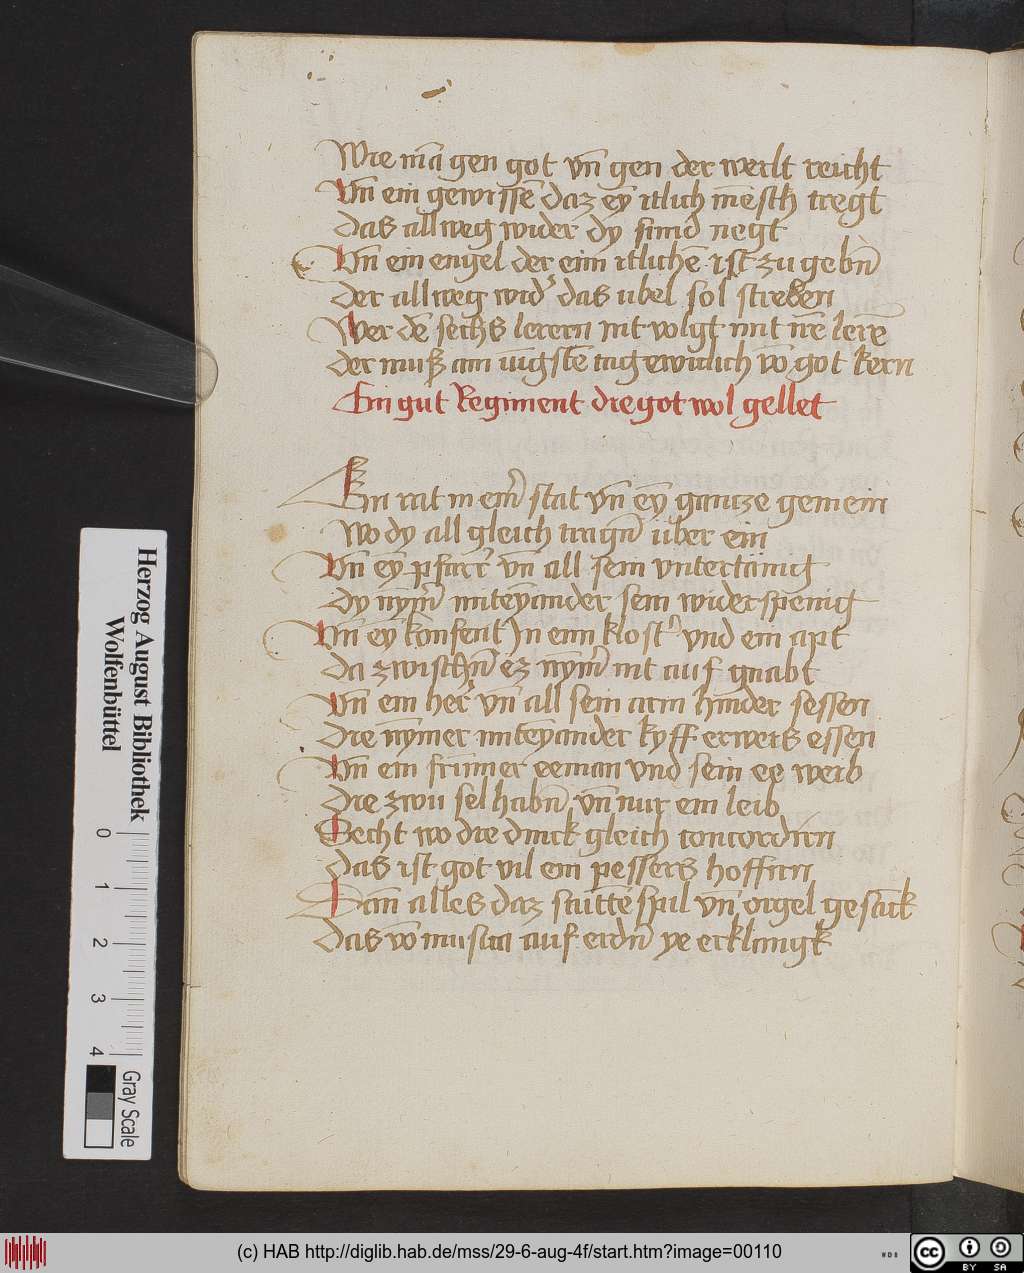 Wie mā gen got vn̄ gen der werlt reicht
Vn̄ ein gewissē daz eȳ itlich mēsch tregt
Das allweg wider dy sund negt
Vn̄ ein engel der eim itlichē ist zu gebn̄
Der allweg wid' das ubel sol streben
Wer dē sechs lerern nit volgt mit irē lerē
der muß am iūgstē tag ewiclich vō got kern
Ein gut Regiment die got wol gellet
Ein rat in em̄ stat vn̄ eȳ gantze gemein
Wo dy all gleich tragn̄ uber ein
Vn̄ eȳ pfarr' vn̄ all sein vntertānig
Dy nȳm̄ miteyander sein widerspenig
Vn̄ eȳ konfent Jn eim klost' vnd ein apt
Da zwischn̄ ez nȳm̄ nit auf gnabt
Vn̄ ein her' vn̄ all sein arm hinder sessen
Die nȳmer miteyander kyff erweis essen
Vn̄ ein frumer eeman vnd sein ee weib
Die zwu sel habn̄ vn̄ nur ein leib
Secht wo die dinck gleich concordirn
Das ist got vil ein pessers hoffirn
Dan̄ alles daz saittē spil vn̄ orgel gesāck
Das vō musica auf erdn̄ ye erklangk
Herzog August Bibliothek
Wolfenbüttel
0 1 2 3 4
Gray Scale
(c) HAB http://diglib.hab.de/mss/29-6-aug-4f/start.htm?image=00110
WDB
cc BY SA